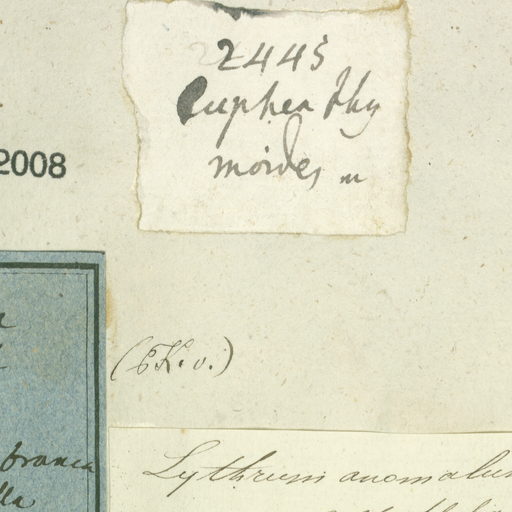 2445
Cuphea thy
moides m
2008
(6K.v.)
branca
lla
Lythrum anomalum